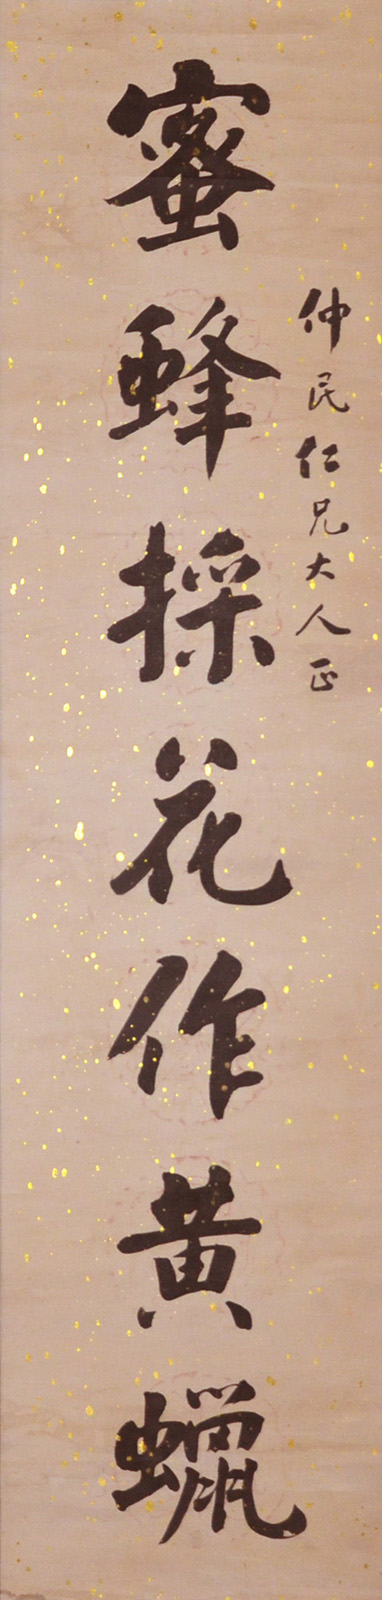 仲民仁兄大人正
蜜蜂採花作黄蠟